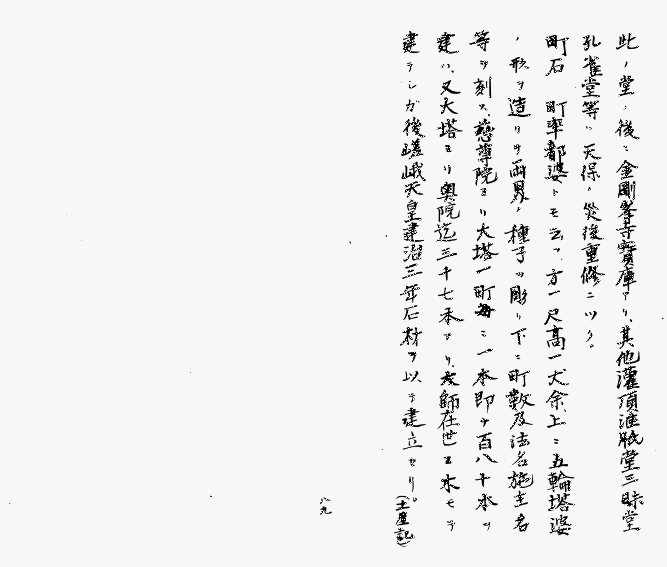 此ノ堂ノ後ニ金剛峯寺寶庫アリ、其他灌頂准胝堂三昧堂
孔雀堂等ハ天保ノ災後重修ニツク。
町石　町率都婆トモ云フ、方一尺高一丈余、上ニ五輪塔婆
ノ形ヲ造リ、両界ノ種子ヲ彫リ下ニ町數及法名施主名
等ヲ刻ス、慈尊院ヨリ大塔一町毎ニ一本即チ百八十本ヲ
建ハ、又大塔ヨリ奥院迄三十七本ナリ、大師在世ニ木モテ
建テシガ後嵯峨天皇建治三年石材ヲ以テ建立セリ。
（土産記）
八九